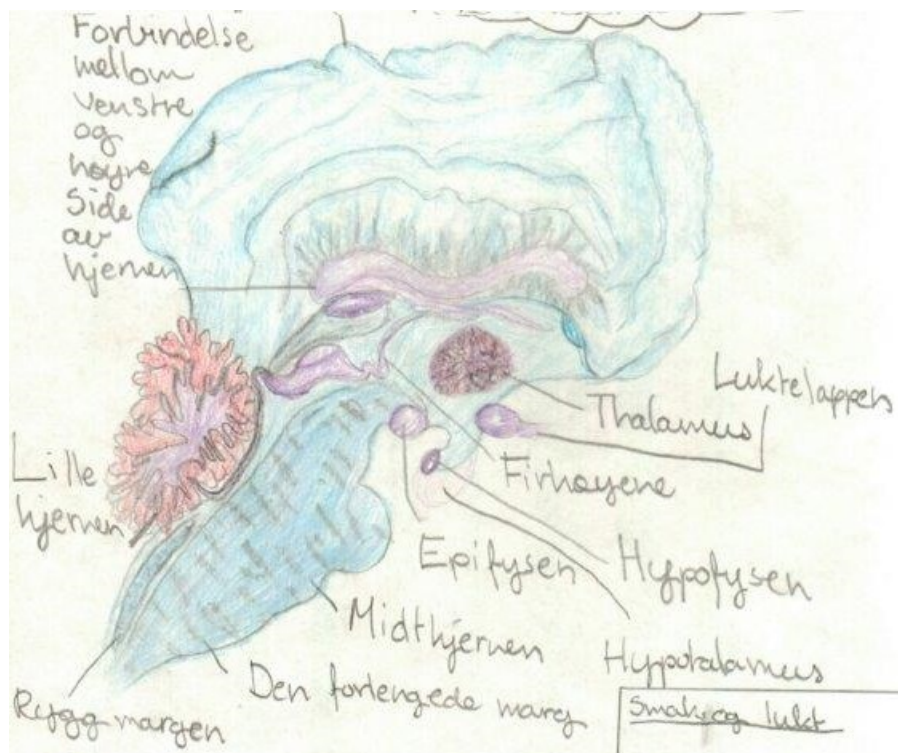 Forbindelse
mellom
venstre
og
høyre
side
av
hjernen
Luktelappen
Thalamus
Lille
hjernen
Firhøyene
Epifysen
Hypofysen
Midthjernen
Hypotalamus
Den forlengede marg
Ryggmargen
Smak og lukt